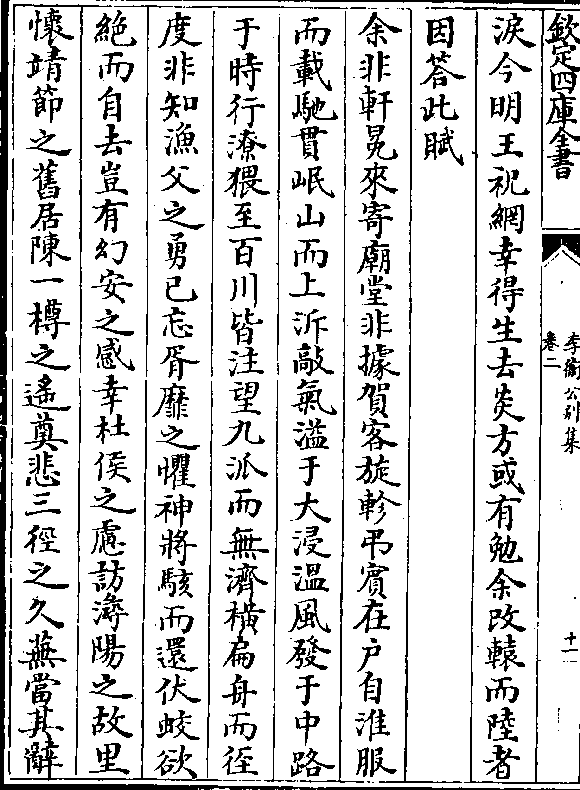 欽定四庫全書
李衛公別集
卷二
十一
淚今明王祝網幸得生去炎方或有勉余改轅而陸者
因答此賦
余非軒冕來寄廟堂非據賀客旋軫弔賓在户自淮服
而載馳貫岷山而上泝敲氣溢于大浸溫風發于中路
于時行潦猥至百川皆注望九派而無濟橫扁舟而徑
度非知漁父之勇已忘胥靡之懼神將駭而還伏蛟欲
絶而自去豈有幻安之感幸杜侯之慮訪潯陽之故里
懷靖節之舊居陳一樽之遙奠悲三徑之久蕪當其辭